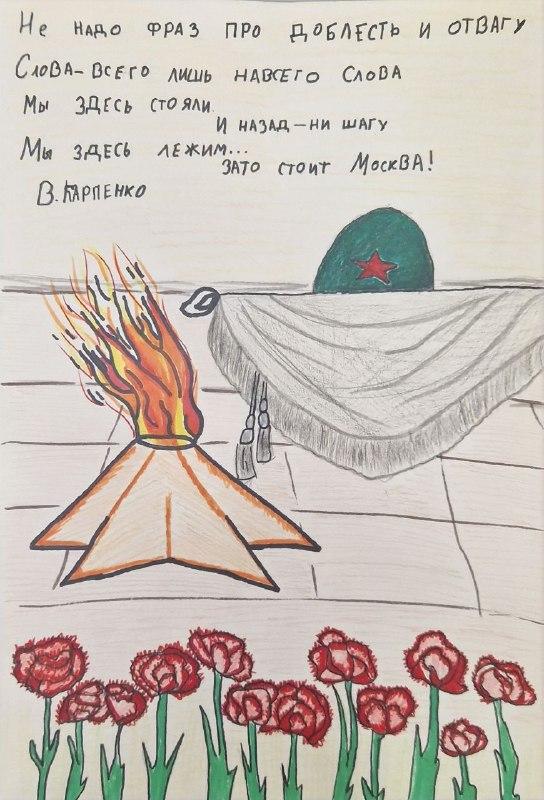 Не надо фраз про доблесть и отвагу
Слова-всего лишь навсего слова
Мы здесь стояли
И назад-ни шагу
Мы здесь лежим...
Зато стоит Москва!
В. Карпенко